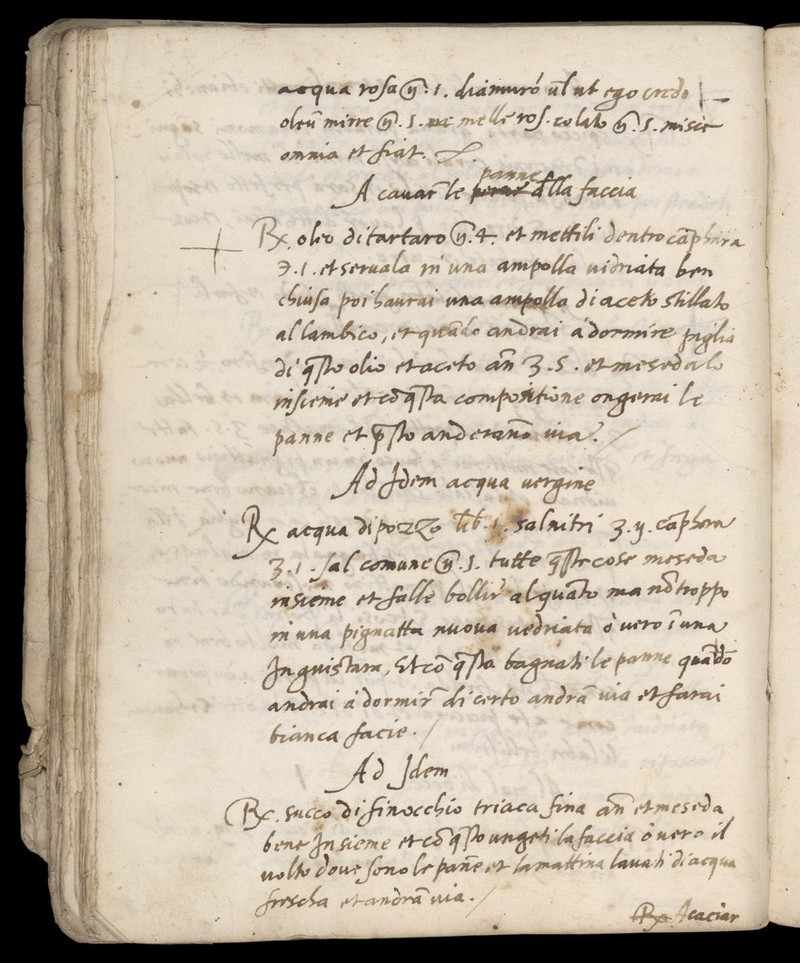 acqua rosa ℥. 1. diamurō ul' ut ego credo
oleū mirre ℥. 1. melle ros. colato ℥. 1. misce
omnia et fiat.
panne
A cauar̄ le alla faccia
Rx. oleo di tartaro ℥. 4. et mettili dentro cāphora
℈. 1. et seruala in una ampolla uidriata ben
chiusa poi haurai una ampolla di aceto stillato
al lambico, et quādo andrai á dormire piglia
di q̄sto olio et aceto an̄ ʒ. 5. et mesedalo
insieme et cō q̄sta compositione ongerai le
panne et p̄sto anderano uia. /
Ad Idem acqua uergine
Rx acqua di pozzo lib. 1. salnitri ʒ. ij. cāphora
ʒ. 1. sal comune ℥. 1. tutte q̄ste cose meseda
insieme et falle bollir̄ alquāto ma nō troppo
in una pignatta nuova uedriata ò uero ī una
Inguistara, Et cō q̄sta bagnati le panne quādo
andrai á dormir̄ di certo andrā uia et farai
bianca facie. /
Ad Idem
Rx. succo di finocchio triaca fina an̄ et meseda
bene Insieme et cō q̄sto ungeti la faccia ò uero il
uolto doue sono le pan̄e et la mattina lauati di acqua
frescha et andrā uia. /
Rx Acaciar